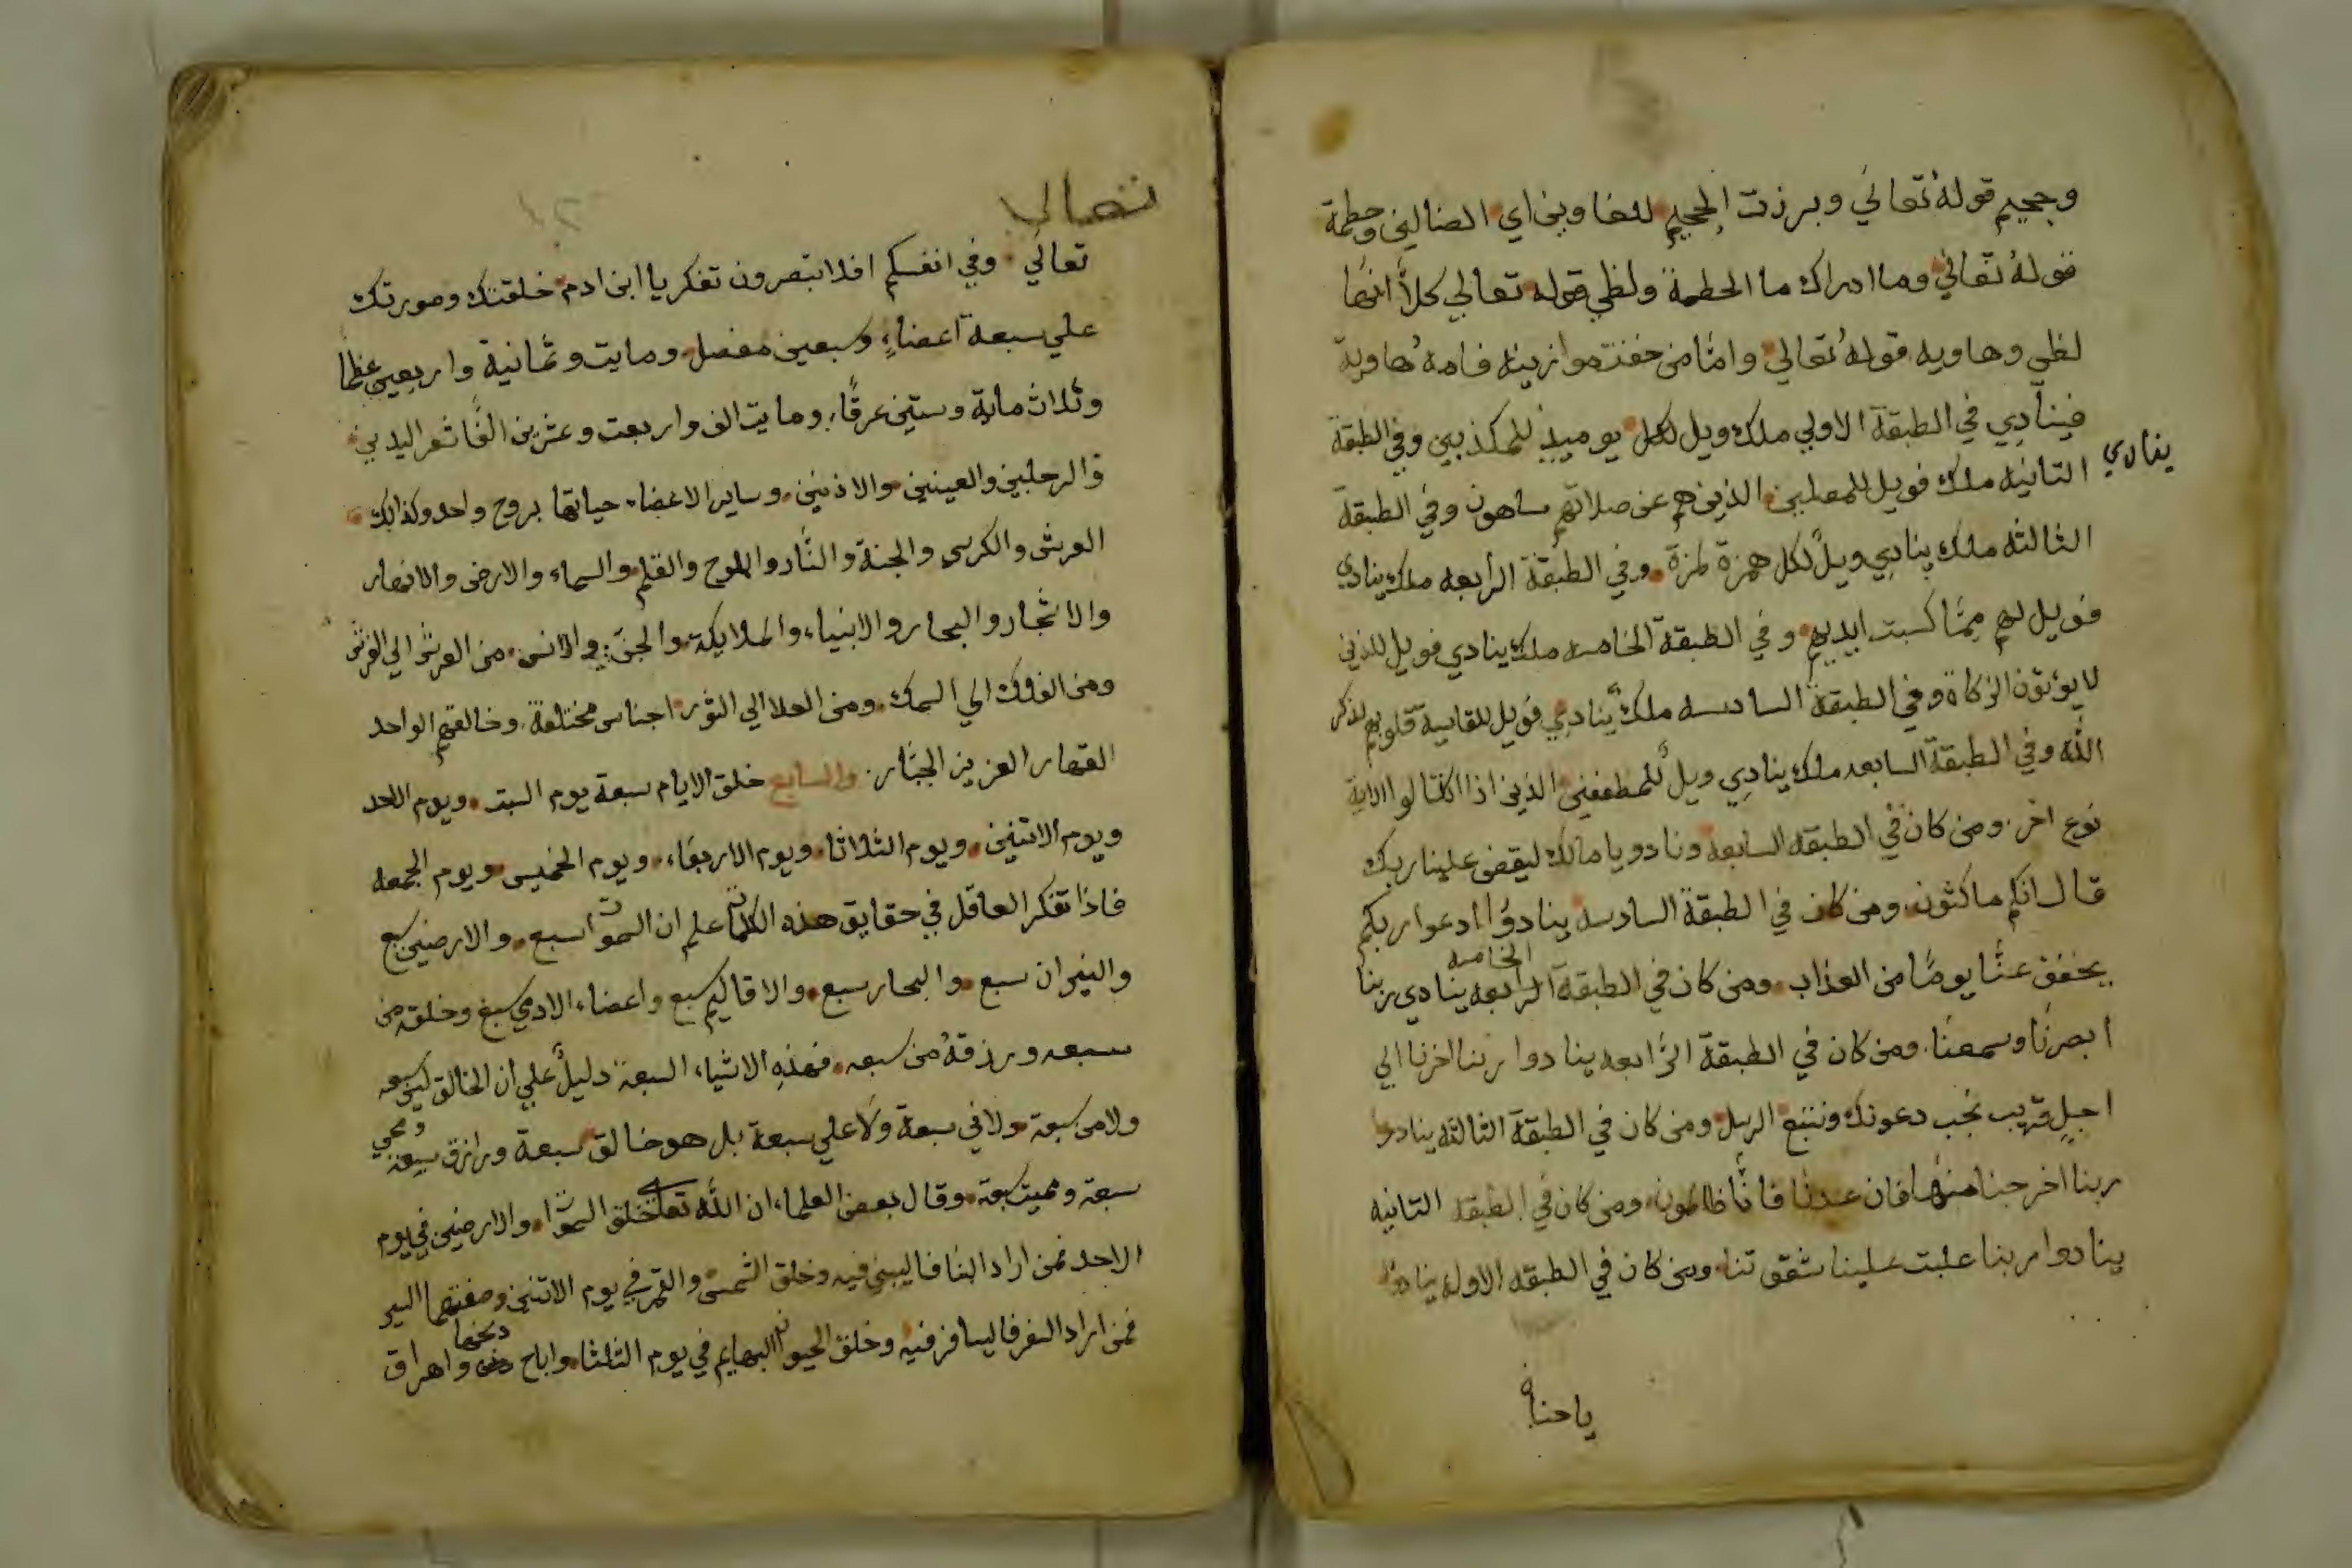 وجحيم قوله تعالي وبرزت الجحيم للغاوين اي الضالين وحطمة
قوله تعالي وما ادراك ما الحطمة ولظي قوله تعالي كلا انها
لظي وهاويه قوله تعالي واما من خفت موازينه فامه هاوية
فينادي في الطبقة الاولي ملك ويل لكل يوميذ للمكذبين وفي الطبقة
ينادي
الثانيه ملك فويل للمصلين الذين هم عن صلاتهم ساهون وفي الطبقة
الثالثه ملك ينادي ويل لكل همزة لمزة وفي الطبقة الرابعه ملك ينادي
فويل لهم مما كسبت ايديهم وفي الطبقة الخامسه ملك ينادي فويل للذين
لا يؤتون الزكاة وفي الطبقة السادسه ملك ينادي فويل للقاسية قلوبهم لذكر
الله وفي الطبقة السابعه ملك ينادي ويل للمطففين الذين اذا اكتالوا الاية
نوع اخر ومن كان في الطبقه السابعة ونادو يا مالك ليقض علينا ربك
قال انكم ماكثون ومن كان في الطبقة السادسه ينادوا ادعوا ربكم
الخامسه
يخفف عنا يوما من العذاب ومن كان في الطبقة الرابعه ينادي ربنا
ابصرنا وسمعنا ومن كان في الطبقة الرابعه ينادوا ربنا اخرنا الي
اجل قريب نجب دعوتك ونتبع الرسل ومن كان في الطبقة الثالثه ينادو
ربنا اخرجنا منها فان عدنا فانا ظالمون ومن كان في الطبقه الثانيه
ينادوا ربنا غلبت علينا شقوتنا ومن كان في الطبقه الاوله ينادوا
ياحنا
تعالي
تعالي وفي انفسكم افلا تبصرون تفكر يا ابن ادم خلقتك وصورتك
علي سبعة اعضاء وسبعين مفصل ومايت وثمانية واربعين عظما
وثلاث ماية وستين عرقا ومايت الف واربعت وعشرين الفا شعر اليدين
والرجلين والعينين والاذنين وساير الاعضاء حياتها بروح واحد وكذالك
العرش والكرسي والجنة والنار واللوح والقلم والسماء والارض والانهار
والاشجار والبحار والانبياء والملايكة والجن والانس من العرش الي الفرش
ومن الفلك الي السمك ومن العلا الي الثور اجناس مختلفة وخالقهم الواحد
القهار العزيز الجبار والسابع خلق الايام سبعة يوم السبت ويوم الاحد
ويوم الاثنين ويوم الثلاثا ويوم الاربعاء ويوم الخميس ويوم الجمعه
فاذا تفكر العاقل في حقايق هذه الكلمات علم ان السموات سبع والارضين سبع
والنيران سبع والبحار سبع والاقاليم سبع واعضاء الادمي سبع وخلقه من
سبعه ورزقه من سبعه فهذه الاشياء السبعة دليل علي ان الخالق ليس سبعه
ولا من سبعة ولا في سبعة ولا علي سبعة بل هو خالق سبعة ورازق سبعة
ومحي
سبعة ومميت سبعة وقال بعض العلماء ان الله تعالي خلق السموات والارضين في يوم
الاحد فمن اراد البنا فاليبني فيه وخلق الشمس والقمر في يوم الاثنين وصفتهما السير
فمن اراد السفر فاليسافر فيه وخلق الحيوان البهايم في يوم الثلثا واباح واهراق